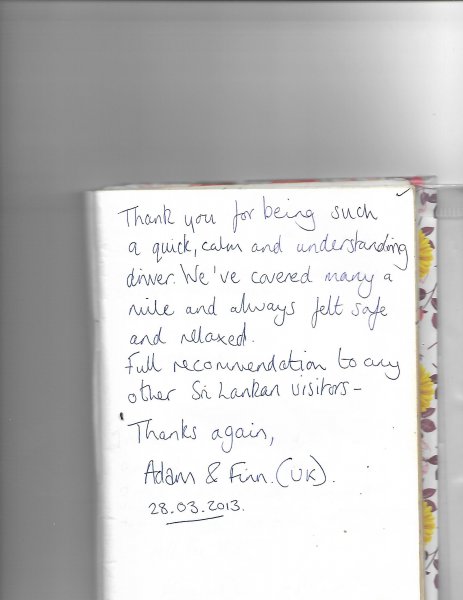 Thank you for being such
a quick, calm and understanding
driver. We've covered many a
mile and always felt safe
and relaxed.
Full recommendation to any
other Sri Lankan visitors -
Thanks again,
Adam & Finn. (UK).
28.03.2013.